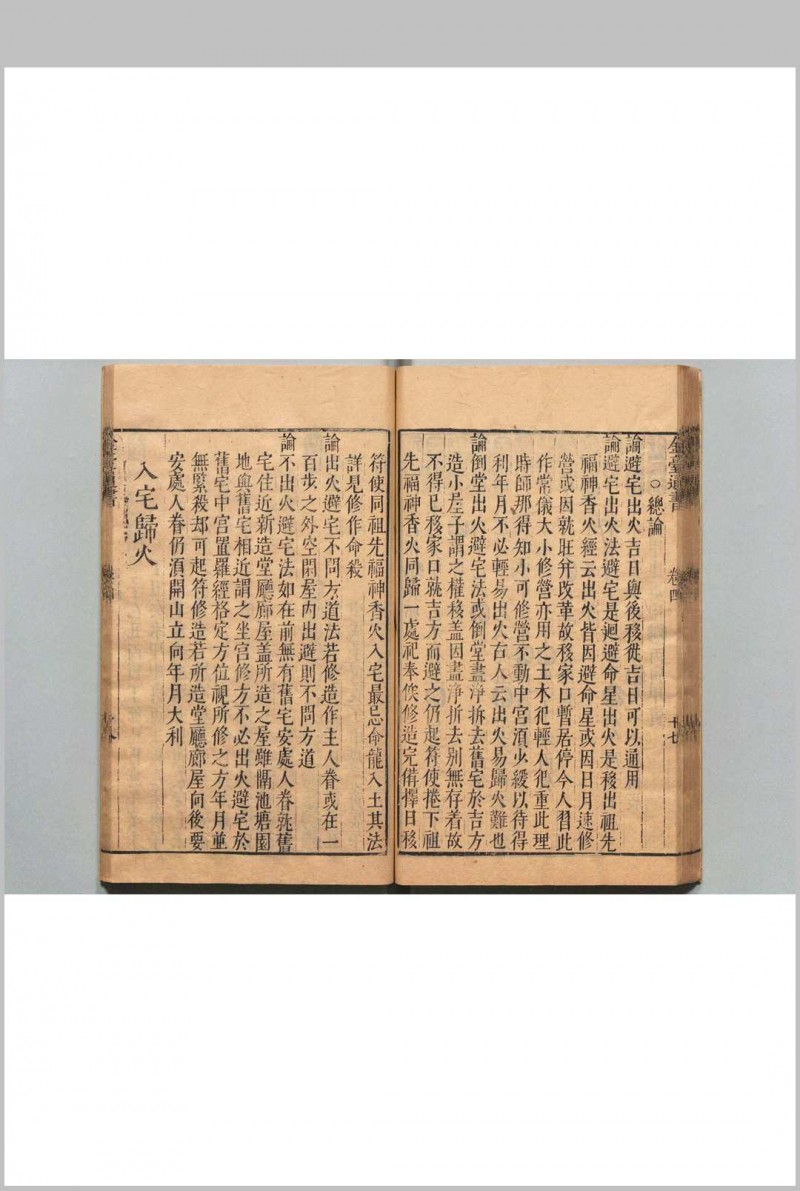 金臺通書
卷四
廿七
○總論
論避宅出火吉日與後移徙吉日可以通用
論避宅出火法避宅是迴避命星出火是移出祖先
福神香火經云出火皆因避命星或因日月速修
營或因就旺并改革故移家口暫居停今人習此
作常儀大小修營亦用之土木犯輕人犯重此理
時師那得知小可修營不動中宮湏少緩以待得
利年月不必輕易出火古人云出火易歸火難也
論倒堂出火避宅法或倒堂盡淨拆去舊宅於吉方
造小屋子謂之權移盖因盡淨拆去別無存着故
不得已移家口就吉方而避之仍起符使捲下祖
先福神香火同歸一處祀奉俟修造完俻擇日移
符使同祖先福神香火入宅最忌命龍入土其法
詳見修作命殺
論出火避宅不問方道法若修造作主人眷或在一
百步之外空閑屋内出避則不問方道
論不出火避宅法如在前無有舊宅安處人眷就舊
宅住近新造堂廳廊屋盖所造之屋雖隔池塘園
地與舊宅相近謂之坐宮修方不必出火避宅於
舊宅中宮置羅經格定方位視所修之方年月並
無緊殺却可起符修造若所造堂廳廊屋向後要
安處人眷仍湏開山立向年月大利
入宅歸火